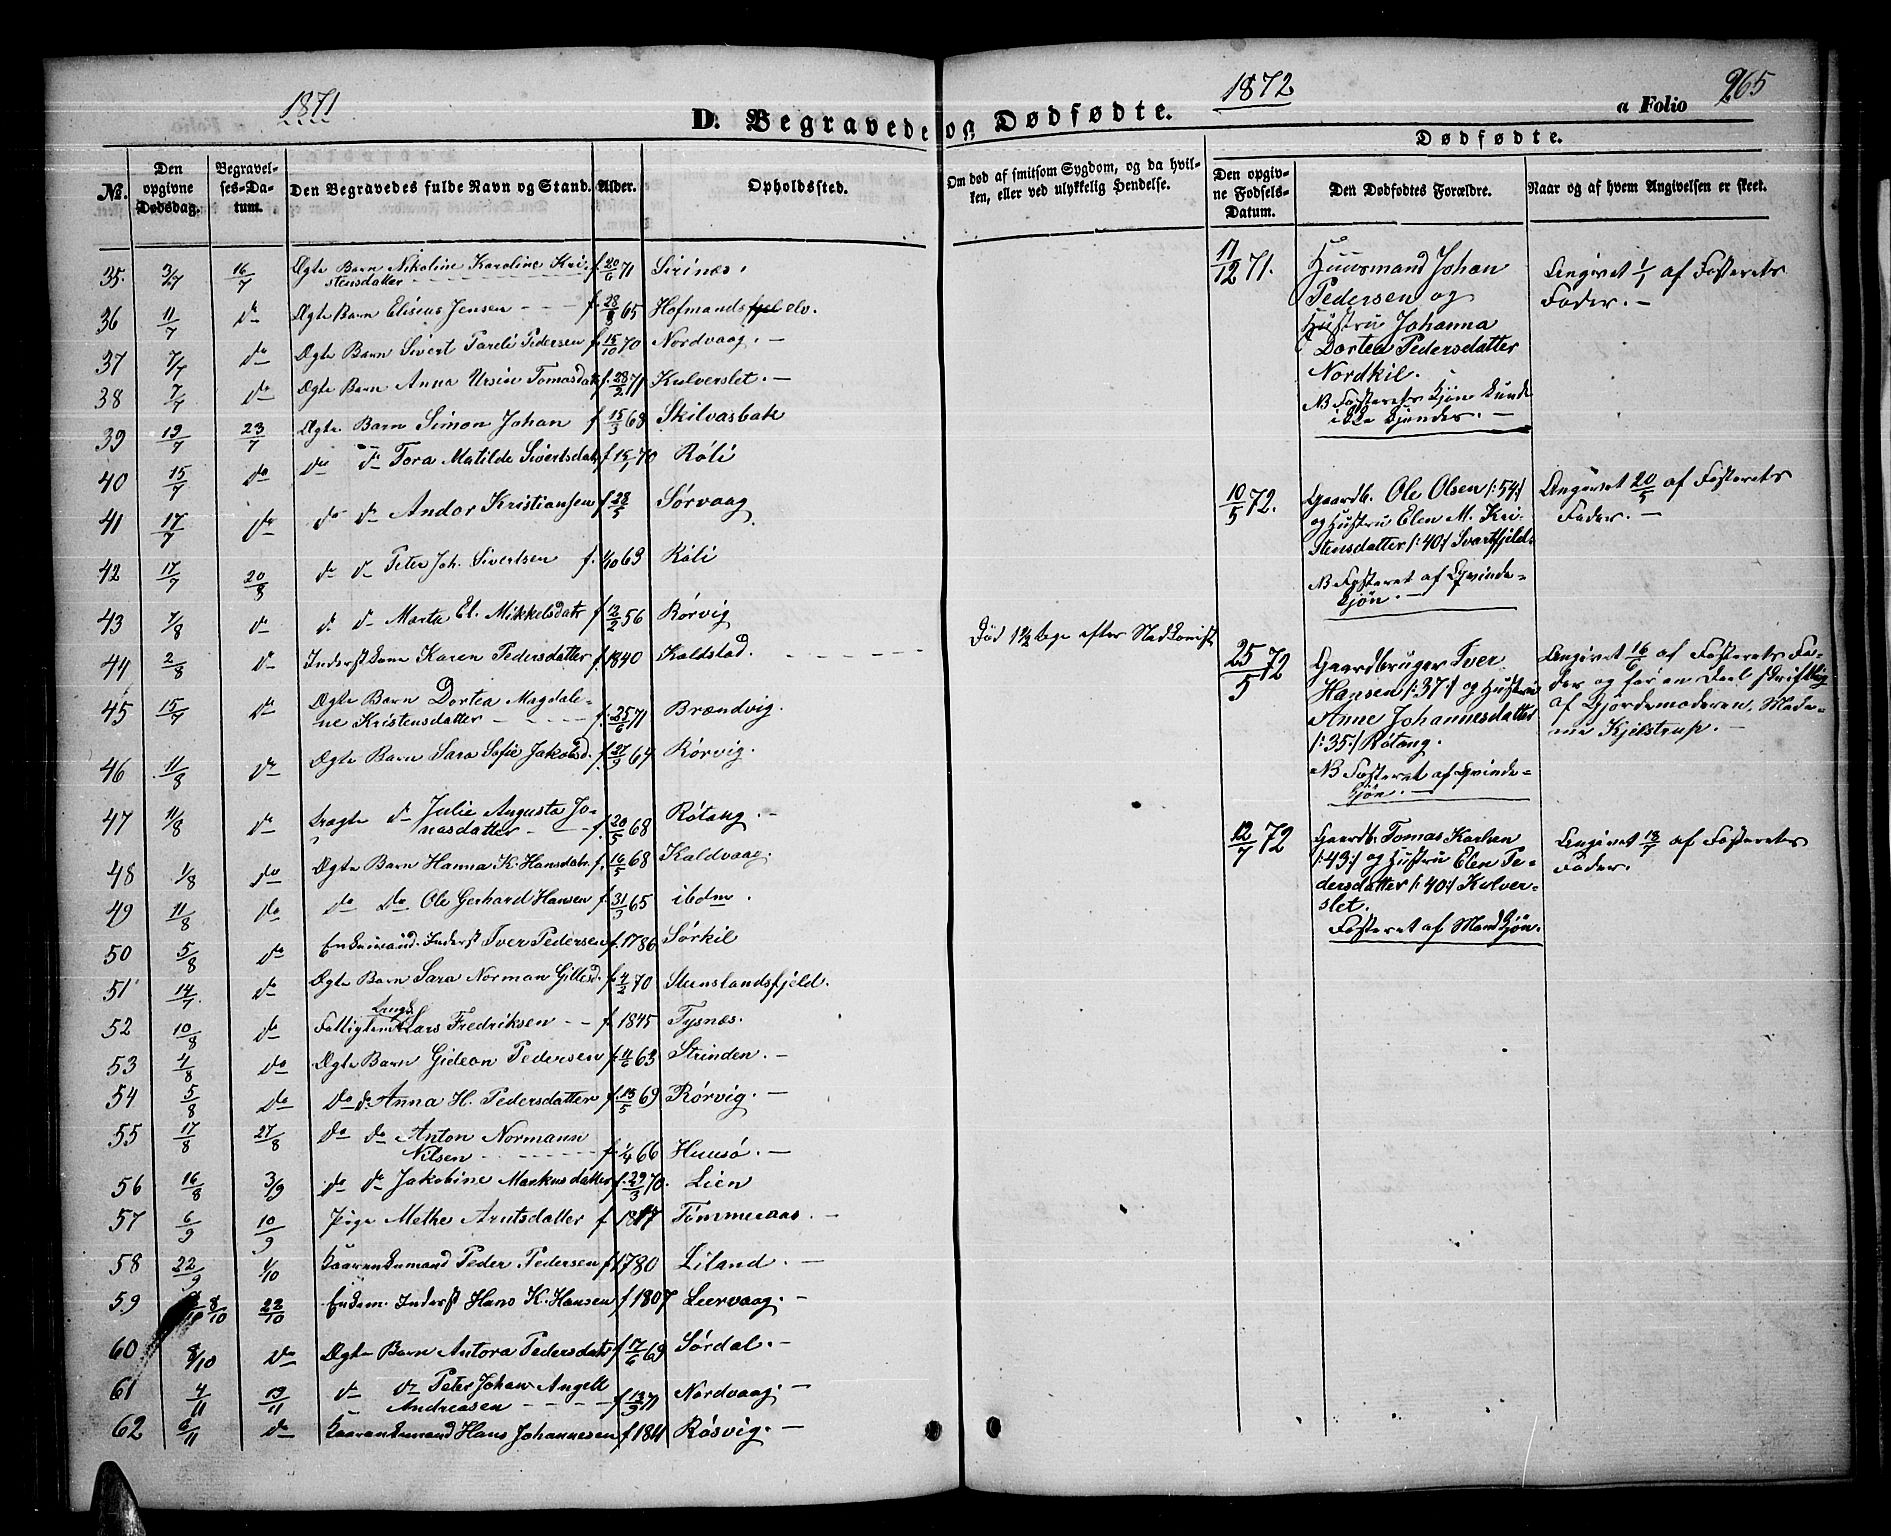 1871
1872
265
D. Begravede og Dødfødte.
a Folio
Dødfødte.
No. Den opgivne Dødsdag. Begravelses-Datum. Den Begravedes fulde Navn og Stand. Alder. Opholdssted.
Om død af smitsom Sygdom, og da hvilken, eller ved ulykkelig Hendelse.
Den opgivne Fødsels-Datum. Den Dødfødtes Forældre. Naar og af hvem Angivelsen er skeet.
35. 3/7 16/7 Ægte Barn Nikoline Karoline Kri-
stensdatter f. 20/6 71 Sirines.
36 11/7 do Ægte Barn Elisius Jensen f. 28/8 65 Hofmandsfjel elv.
37 7/7 do Ægte Barn Sivert Pareli Pedersen f. 15/10 70 Nordvaag. –
38 7/7 do Ægte Barn Anna Ursin Tomasdatr f. 28/2 71 Kulverslet. –
39 19/7 23/7 Ægte Barn Simon Johan f 15/3 68 Skilvasbak
40 15/7 do do do Tora Matilde Sivertsdatr f 15/1 70 Röli
41 17/7 do do do Andor Kristiansen f. 28/5 Sörvaag
42 17/7 20/8 do do Peter Joh. Sivertsen f. 4/10 63 Röli
43 7/8 do do do Marta El. Mikkelsdatr f. 12/2 56 Rörvig
44 2/8 do Inderstkone Karen Pedersdatter f. 1840 Kaldstad.
Död 1½ Dage efter Nedkomst
45 15/7 do Ægte Barn Dortea Magdale-
ne Kristensdatter f. 25/6 71 Brændvig.
46 11/8 do Ægte Barn Sara Sofie Jakobsd. f. 27/9 64 Rörvig.
47 11/8 do Uægte do Julie Augusta Jo-
nasdatter f. 20/5 68 Rötang. –
48 1/8 do Ægte Barn Hanna K. Hansdatr. f. 16/5 68 Kaldvaag.
49 11/8 do do do Ole Gerhard Hansen f. 31/3 65 ibdm.
50 5/8 do Enkemand. Inderst Iver Pedersen f. 1786 Sörkil
51 14/7. do Ægte Barn Sara Norman Gillesd. f. 4/2 70 Stenslandsfjeld.
Ungk.
52 10/8 do Fattiglem Lars Fredriksen f. 1845 Tysnes.
53 1/8 do Ægte Barn Gideon Pedersen f. 4/6 63 Strinden. –
54 5/8 do do do Anna H. Pedersdatter f. 13/5 69 Rörvig. –
55 17/8 27/8 do do Anton Normann
Nilsen f. 1/4 66 Husö. –
56 16/8 3/9 do do Jakobine Markusdatter f. 29/3 70. Lien
57 6/9 10/9 Pige Methe Arntsdatter f 1817 Tömmeraas. –
58 22/9 1/10 Kaarenkemand Peder Pedersen f 1780 Liland. –
59 8/10 22/10 Enkem. Inderst Hans K. Hansen f 1807 Leervaag. –
60 8/10 do Ægte Barn Antora Pedersdatr f 17/6 69 Sördal. –
61 4/11 19/11 do do Peter Johan Angell
Andreasen f 13/9 71 Nordvaag. –
62 6/11 do Kaarenkemand Hans Johannesen f 1811 Rösvig. –
11/12 71. Huusmand Johan
Pedersen og
Hustru Johanna
Dortea Pedersdatter
Nordkil.
NB Fosterets Kjön kunde
ikke kjendes. –
Angivet 1/1 af Fosterets
Fader. –
10/5 72. Gaardb. Ole Olsen /:54:/
og Hustru Elen M. Kri-
stensdatter /:40:/ Svartfjeld.
NB Fosteret af Qvinde-
kjön. –
Angivet 20/5 af Fosterets
Fader. –
25/5 72 Gaardbruger Iver
Hansen /:37:/ og Hustru
Anne Johannesdatter
/:35:/ Rötang.
NB Fosteret af Qvinde-
kjön. –
Angivet 16/6 af Fosterets Fa-
der og for en Deel skriftlig
af Gjordemoderen, Mada-
me Kjelstrup. –
12/7 72 Gaardb. Tomas Karlsen
/:43:/ og Hustru Elen Pe-
dersdatter /:40:/ Kulver-
slet.
Fosteret af Mandkjön.
Angivet 13/7 af Fosterets
Fader.